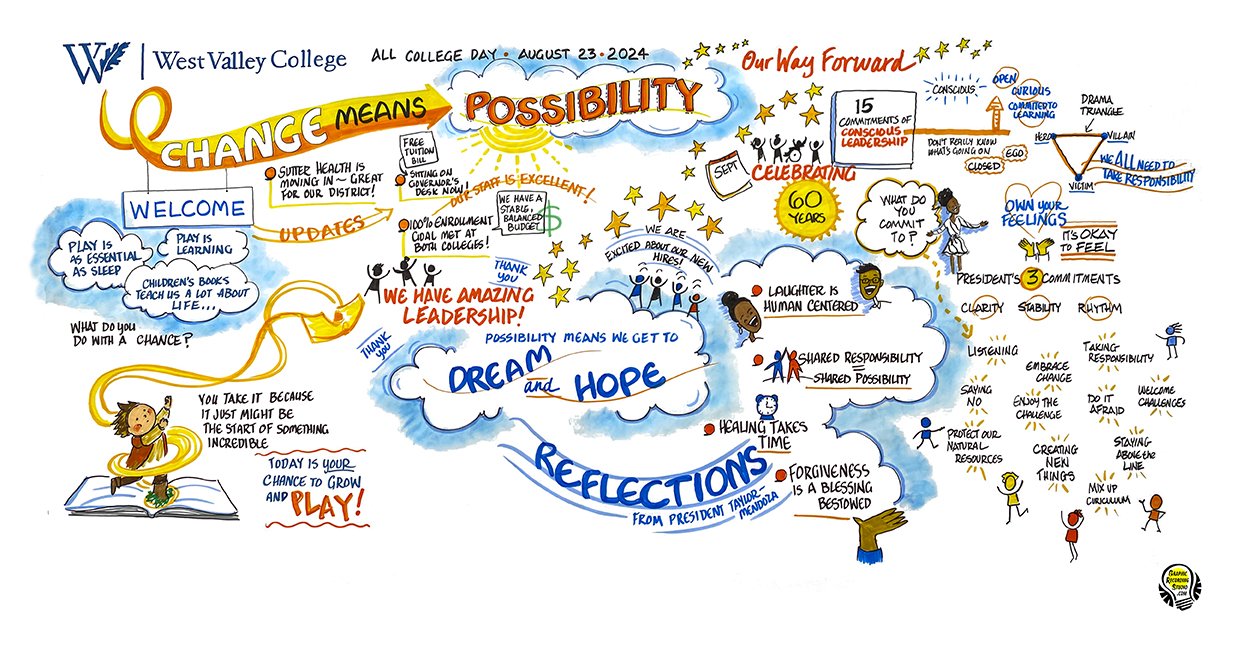 West Valley College
ALL COLLEGE DAY • AUGUST 23 • 2024
CHANGE MEANS
POSSIBILITY
WELCOME
PLAY IS
AS ESSENTIAL
AS SLEEP
PLAY IS
LEARNING
CHILDREN'S BOOKS
TEACH US A LOT ABOUT
LIFE...
WHAT DO YOU
DO WITH A CHANCE?
YOU TAKE IT BECAUSE
IT JUST MIGHT BE
THE START OF SOMETHING
INCREDIBLE
TODAY IS YOUR
CHANCE TO GROW
AND PLAY!
UPDATES
SUTTER HEALTH IS
MOVING IN ~ GREAT
FOR OUR DISTRICT!
FREE
TUITION
BILL
SITTING ON
GOVERNOR'S
DESK NOW!
OUR STAFF IS EXCELLENT!
100% ENROLLMENT
GOAL MET AT
BOTH COLLEGES!
WE HAVE A
STABLE,
BALANCED
BUDGET
$
THANK
YOU
WE HAVE AMAZING
LEADERSHIP!
THANK
YOU
WE ARE
EXCITED ABOUT OUR NEW
HIRES!
POSSIBILITY MEANS WE GET TO
DREAM
and HOPE
REFLECTIONS
FROM PRESIDENT TAYLOR-
MENDOZA
LAUGHTER IS
HUMAN CENTERED
SHARED RESPONSIBILITY
=
SHARED POSSIBILITY
HEALING TAKES
TIME
FORGIVENESS
IS A BLESSING
BESTOWED
Our Way Forward
SEPT
CELEBRATING
60
YEARS
15
COMMITMENTS OF
CONSCIOUS
LEADERSHIP
CONSCIOUS
OPEN
CURIOUS
COMMITTED TO
LEARNING
DON'T REALLY KNOW
WHAT'S GOING ON
EGO
CLOSED
DRAMA
TRIANGLE
HERO
VILLAIN
VICTIM
WE ALL NEED TO
TAKE RESPONSIBILITY
WHAT DO
YOU
COMMIT
TO?
OWN YOUR
FEELINGS
IT'S OKAY
TO FEEL
PRESIDENT'S 3 COMMITMENTS
CLARITY STABILITY RHYTHM
LISTENING
EMBRACE
CHANGE
TAKING
RESPONSIBILITY
SAYING
NO
ENJOY THE
CHALLENGE
DO IT
AFRAID
WELCOME
CHALLENGES
PROTECT OUR
NATURAL
RESOURCES
CREATING
NEW
THINGS
STAYING
ABOVE the
LINE
MIX UP
CIRICULUM
GRAPHIC
RECORDING
STUDIO
.COM